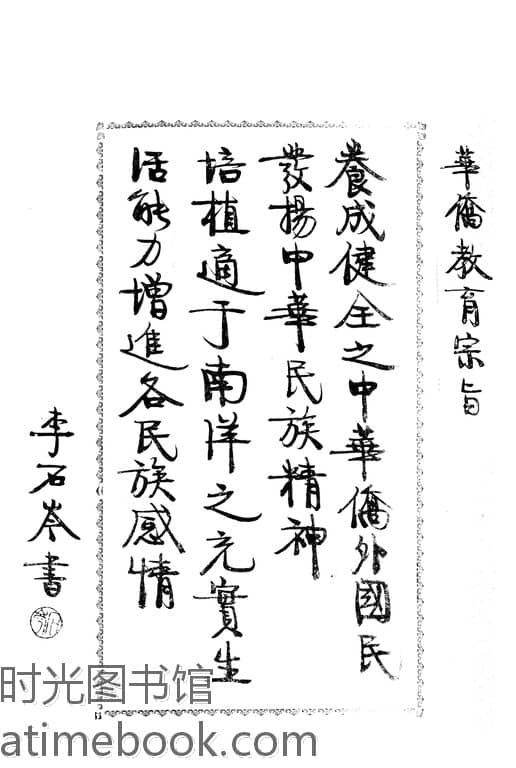 華僑教育宗旨
養成健全之中華僑外國民
發揚中華民族精神
培植適于南洋之充實生
活能力增進各民族感情
李石岑書
时光图书馆
atimebook.com